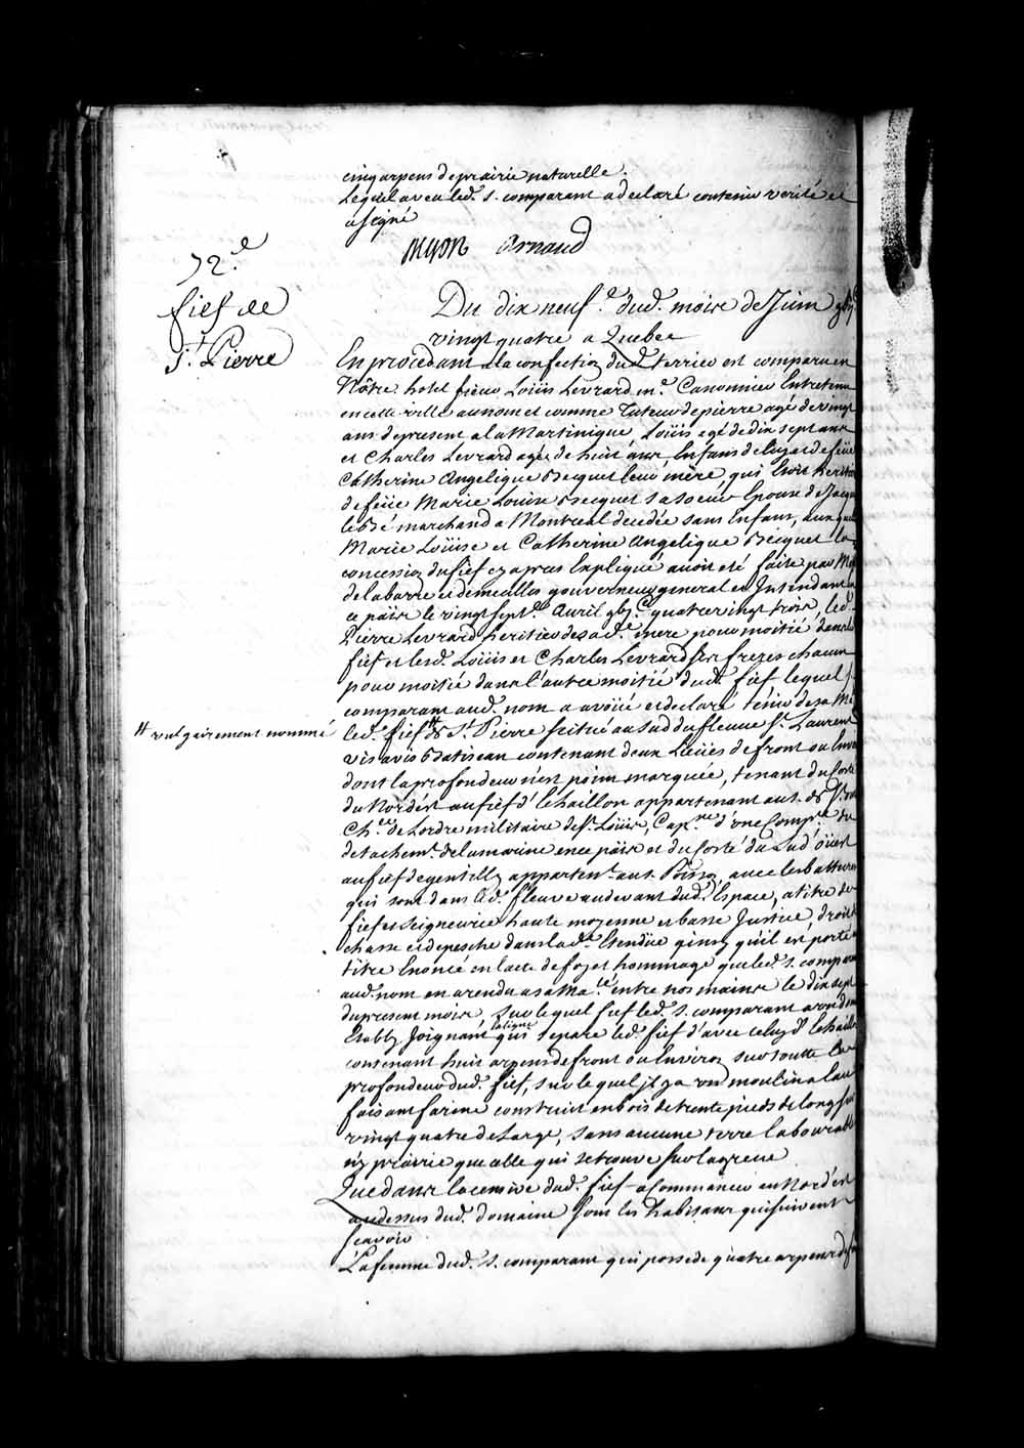 cinq arpens de prairie naturelle.
Lequel aveu led. s. comparant a declaré contenir verité et
a signé
Arnaud
72.e
fief de
St. Pierre
Du dix neuf.e dud. mois de Juin
vingt quatre a Quebec
En procedant a la confection dud. terrier est comparu en
Nôtre hotel sieur Loüis Levrard m.e Canonnier Entretenu
en cette ville au nom et comme Tuteur de pierre agé de vingt
ans de present a la Martinique, Loüis agé de dix sept ans
et Charles Levrard agé de huit ans Enfans de luy et de feüe
Catherine Angelique Becquet leur mère, qui Etoit heritiere
de feüe Marie Louise Becquet sa soeur Epouse de Jacques
le Bé marchand a Montreal decedée sans Enfans, auxquelles
Marie Loüise et Catherine Angelique Becquet la
concession du fief cy apres Expliqué avoit eté faite par Mrs
de la barre et demeulles gouverneur general et Intendant en
ce païs le vingt sept.e Avril gbj.c quatre vingt trois, led.
Pierre Levrard heritier de sad. mere pour moitié dans led.
fief et lesd. Loüis et Charles Levrard ses freres chacun
pour moitié dans l'autre moitié dud. fief lequel s.
comparant aud. nom a avoüé et declaré tenir de sa Mté
# vulgairement nommé
led. fief # de St. Pierre scitué au sud du fleuve St. Laurent
vis avis Batiscan contenant deux Lieües de front ou Environ
dont la profondeur n'est point marquée, tenant du Costé
du Nordést au fief d'Echaillon appartenant au s. de St.
Ch.er de Lordre militaire de St. Loüis, Cap.ne d'une Comp.ie du
detachem.t de la marine en ce païs et du Costé du Sud'oüest
au fief de gentilly appartent. au s. Poisson, avec les batturres
qui sont dans led. fleuve au devant dud. Espace, a titre de
fief et seigneurie haute moyenne et basse Justice, droit de
chasse et de pesche dans lad. Etendüe ainsy qu'il est porté
titre Enoncé en l'acte de foy et hommage que led. s. comparant
aud. nom en a rendu a sa Ma.té entre nos mains le dix sept
du present mois, sur lequel fief led. s. comparant a un domaine
Etably Joignant la ligne qui separe led. fief d'avec celuy d'Echaillon
contenant huit arpens de front ou Environ sur toutte la
profondeur dud. fief, sur lequel il y a un moulin a Eau
faisant farine construit en bois de trente pieds de long sur
vingt quatre de large, sans aucune terre labourable
n'y prairie que celle qui se trouve sur la greve
Que dans la censive dud. fief a Commencer au Nord'est
au dessus dud. domaine sont les habitans qui suivent
scavoir
La femme dud. s. comparant qui possede quatre arpens de